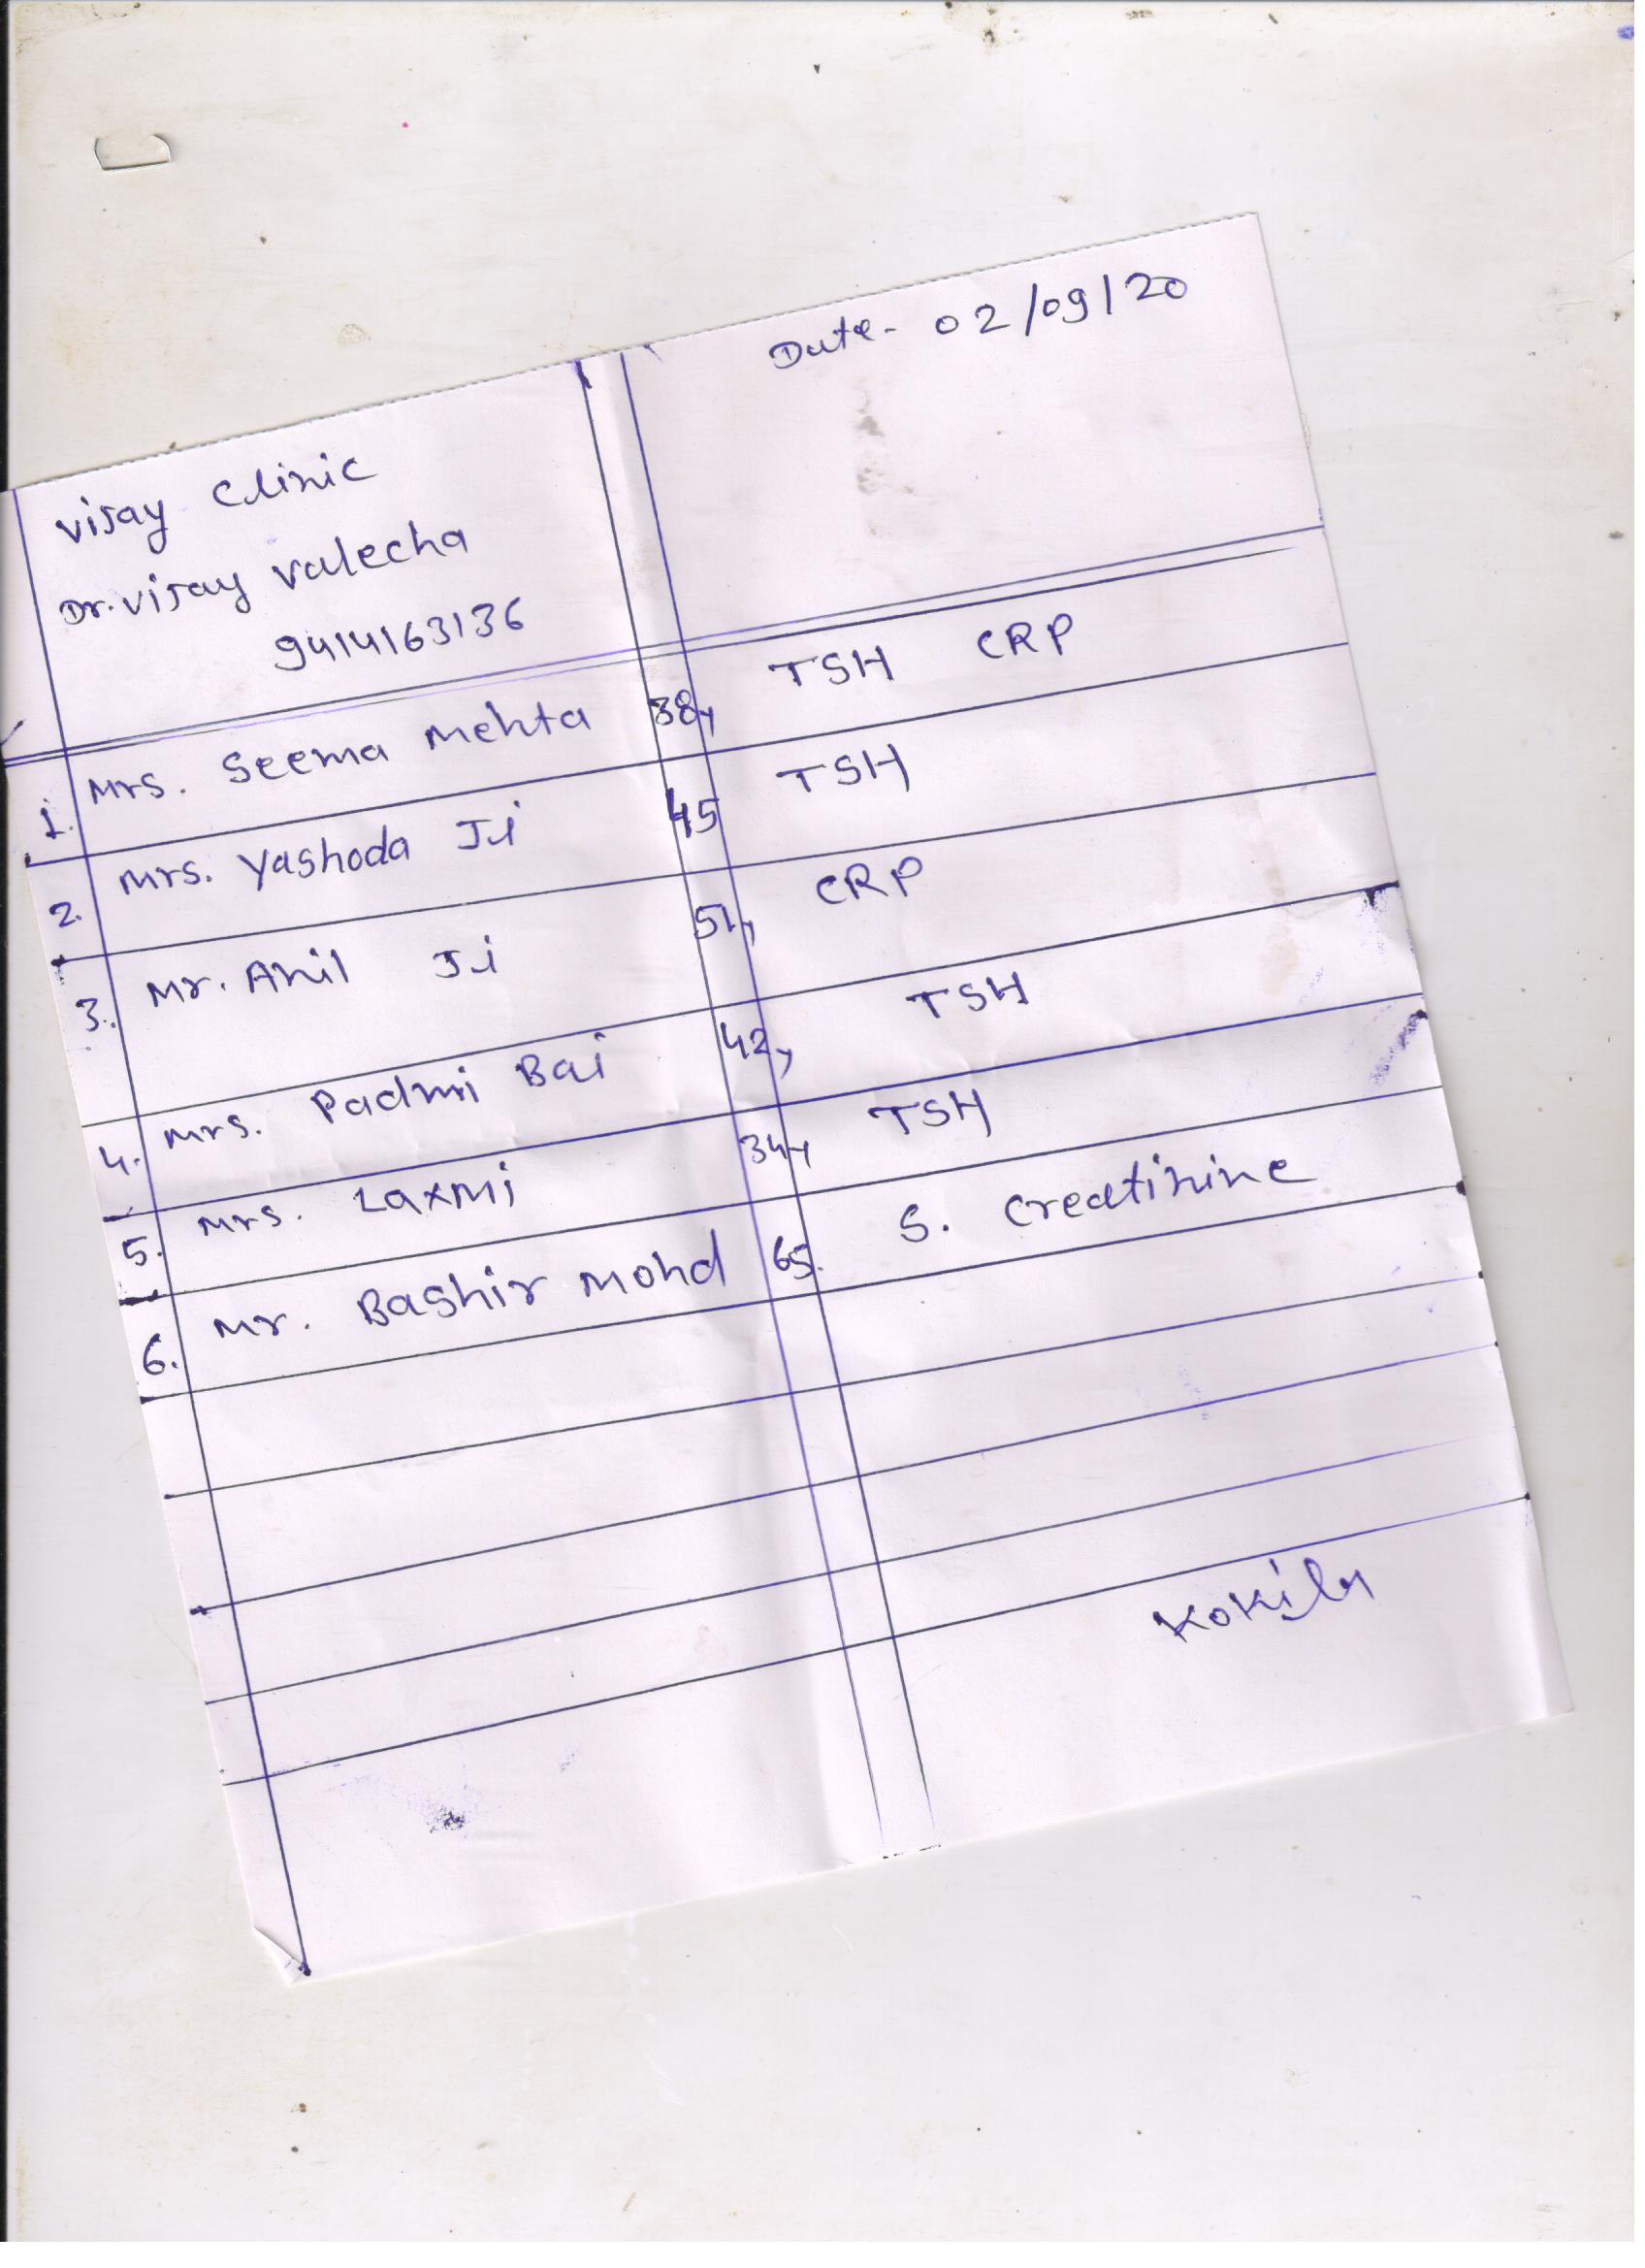 Date- 02/09/20
Vijay Clinic
Dr. Vijay Valecha
9414163136
1. Mrs. Seema Mehta 38y TSH CRP
2. Mrs. Yashoda Ji 45 TSH
3. Mr. Anil Ji 51y CRP
4. Mrs. Padmi Bai 42y TSH
5. Mrs. Laxmi 34y TSH
6. Mr. Bashir Mohd 65. S. Creatinine
Kokila